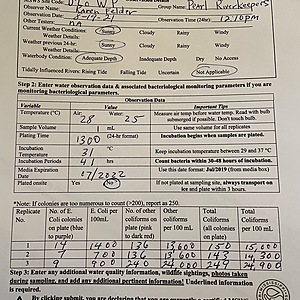 Observer Name: Karen Felder
Group Name: Pearl Riverkeepers
Other Testers: NA
Observation Time (24hr) 12:10pm
Current Weather Conditions: Sunny Cloudy Rainy Windy
Weather Details:
Weather previous 24-hr: Sunny Cloudy Rainy Windy
Weather Details:
Waterbody Condition: Adequate Depth Inadequate Depth Dry No Access
Tidally Influenced Rivers: Rising Tide Falling Tide Uncertain Not Applicable
Step 2: Enter water site data & associated bacteriological monitoring parameters if you are
monitoring bacteriological parameters.
Observation Data
Variable Value Important Tips
Temperature (°C) Air: 28 Water: 25 Measure air temp before water temp. Read with bulb
submerged if possible. Don't touch bulb.
Sample Volume 1 mL Use same volume for all replicates
Plating Time 1300 (24-hr format) Incubation begins when samples are plated.
Incubation
Temperature 31 °C Keep incubation temperature between 29 and 37 °C
Incubation Periods 41 hrs Count bacteria within 30-48 hours of incubation.
Media Expiration
Date 07/2022 Use this date format: Jul/2019 (from media box)
Plated onsite Yes No If not plated at sampling site, always transport on
ice and plate within 3 hours.
*Note: If colonies are too numerous to count (>200), report as 250.
Replicate
No. No. of E.
Coli colonies
on plate (blue
to purple) E. Coli per
100mL No. of other
coliforms on
plate (pink
to red) Other
coliforms
per 100 mL Total
Coliforms
(all colonies
on plate) Total
Coliforms
per 100 mL
1 14 1400 136 13,600 150 15,000
2 7 700 136 13,600 143 14,300
3 9 900 240 24,000 249 24,900
Step 3: Enter any additional water quality information, wildlife sightings, photos taken
during sampling, and add any additional pertinent information! Underlined information
is required.
By clicking submit, you are declaring that you are